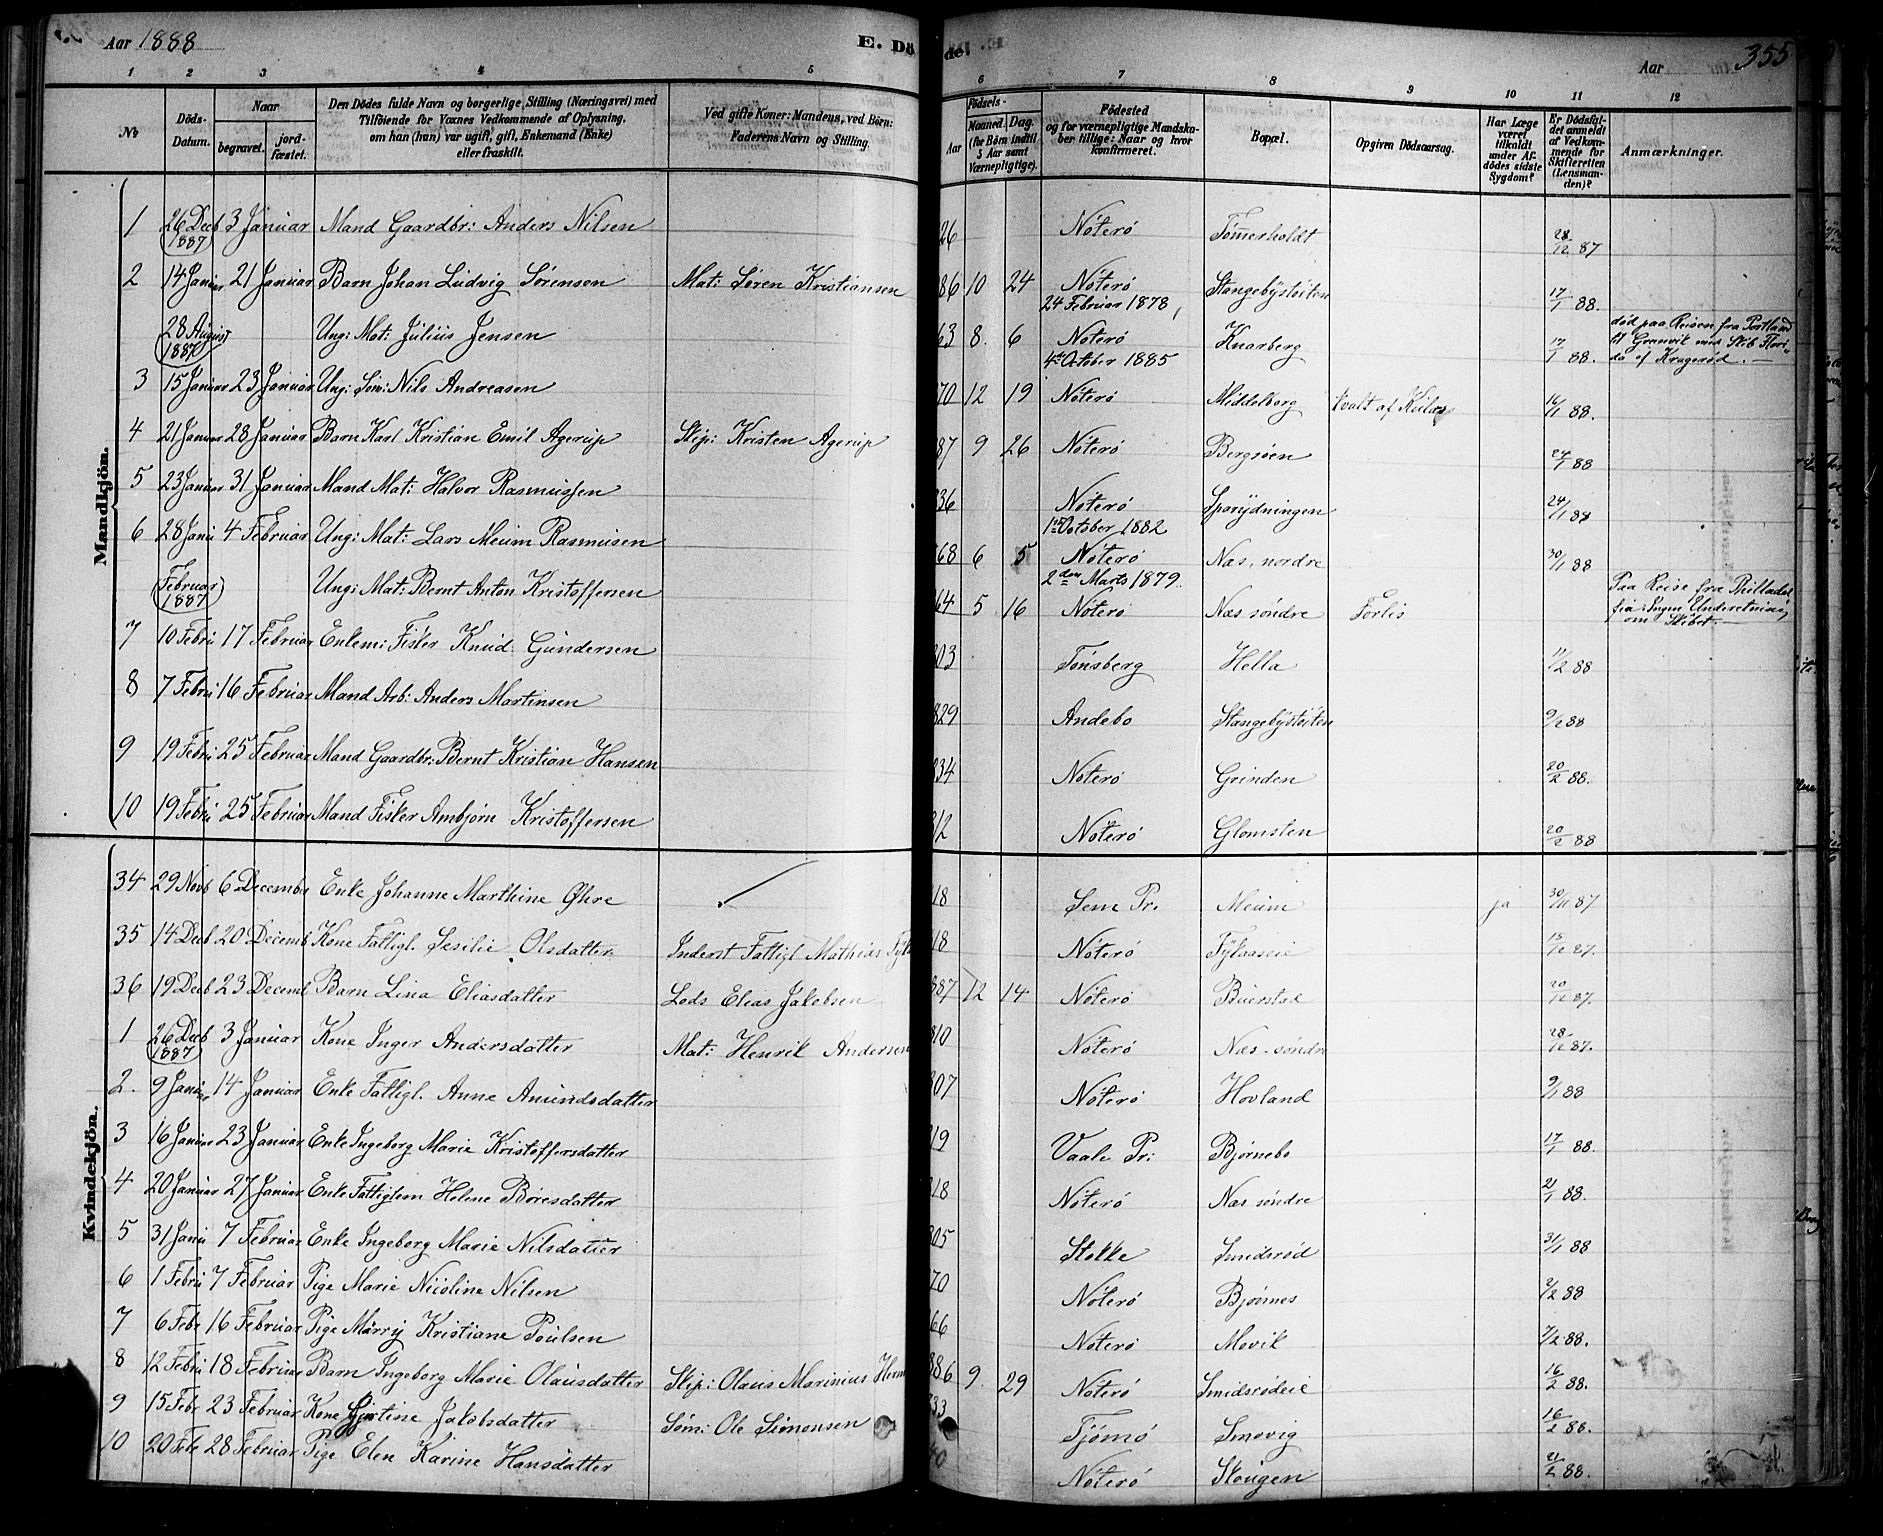 Aar 1888
E. Dö
de.
355
Aar
1 2 3 4 5 6 7 8 9 10 11 12
No
Döds-Datum.
Naar
begravet.
jord-fæstet.
Den Dödes fulde Navn og borgerlige Stilling (Næringsvei) med
Tilföiende for Voxnes Vedkommende af Oplysning,
om han (hun) var ugift, gift, Enkemand (Enke)
eller fraskilt.
Ved gifte Koner: Mandens, ved Börn:
Faderens Navn og Stilling.
Födsels-
Aar
Maaned.
Dag.
(for Börn indtil
5 Aar samt
Værnepligtige).
Födested
og for værnepligtige Mandska-
ber tillige: Naar og hvor
konfirmeret.
Bopæl.
Opgiven Dödsaarsag.
Har Læge
været
tilkaldt
under Af-
dödes sidste
Sygdom?
Er Dödsfal-
det anmeldt
af Vedkom-
mende for
Skifteretten
(Lensman-
den)?
Anmærkninger.
Mandkjön.
1 26 Decb (1887) 3 Januar Mand Gaardbr: Anders Nilsen 26 Nöterö Tömerholdt 28/12 87
2 14 Januar 21 Januar Barn Johan Ludvig Sörensen Mat: Sören Kristiansen 86 10 24 Nöterö Stangebystöiten 17/1 88.
28 August (1887) Ung: Mat: Julius Jensen 63 8. 6 24 Februar 1878, Nöterö Knarberg 17/1 88. död paa Reisen fra Portland
til Grenvik med Skib Flori-
da af Kragerød.
3 15 Januar 23 Januar Ung: Söm: Nils Andreasen 70 12 19 4de October 1885 Nöterö Middelborg kvalt af Kullos 16/1 88.
4 21 Januar 28 Januar Barn Karl Kristian Emil Agerup Skip: Kristen Agerup 87 9 26 Nöterö Bergsöen 24/1 88
5 23 Januar 31 Januar Mand Mat: Halvor Rasmussen 36 Nöterö 24/1 88
6 28 Janu 4 Februar Ung: Mat: Lars Meum Rasmusen 68 6 5 1ste October 1882 Nöterö Næs, nordre 30/1 88
Februar (1887) Ung: Mat: Bernt Anton Kristoffersen 64 5 16 2den Marts 1879. Nöterö Næs söndre Forlis Paa Reise fra Philladel
fia: Ingen Underetning
om Skibet.
7 10 Febru 17 Februar Enkem: Fisker Knud Gundersen 803 Tönsberg Hella 11/2 88
8 7 Febru 16 Februar Mand Arb: Anders Martinsen 829 Andebo Stangebystöiten 9/2 88
9 19 Febru 25 Februar Mand Gaardbr: Bernt Kristian Hansen 834 Nöterö Grinden 20/2 88.
10 19 Febru 25 Februar Mand Fisker Ambjörn Kristoffersen 812 Nöterö Glomsten 20/2 88
Kvindekjön.
34 29 Novb 6 Decembe Enke Johanne Marthine Øhre 18 Sem Pr. Meum ja 30/11 87
35 14 Decb 20 Decemb Kone Fattigl. Sesilie Olsdatter Inderst Fattigl Mathias 18 Nöterö Fylaaseie 15/12 87.
36 19 Decb 23 Decemb Barn Lina Eliasdatter Lods Elias Jakobsen 887 12 14 Nöterö Buerstad 20/12 87.
1 26 Decb (1887) 3 Januar Kone Inger Andersdatter Mat: Henrik Andersen 810 Nöterö Næs söndre 28/12 87.
2. 9 Januar 14 Januar Enke Fattigl. Anne Amundsdatter 807 Nöterö Hovland 9/1 88
3 16 Januar 23 Januar Enke Ingeborg Marie Kristoffersdatter 819 Vaale Pr: Bjørnebo 17/1 88.
4 20 Januar 27 Januar Enke Fattiglem Helene Böresdatter 818 Nöterö Næs söndre 21/1 88.
5 31 Janu 7 Februar Enke Ingeborg Marie Nilsdatter 805 Stokke Smidsröd 31/1 88
6 1 Febru 7 Februar Pige Marie Nicoline Nilsen 70 Nöterö Bjørnes 2/2 88
7 6 Febr 16 Februar Pige Marry Kristiane Poulsen 66 Nöterö Movik 7/2 88.
8 12 Febru 18 Februar Barn Ingeborg Marie Olausdatter Skip: Olaus Marinius 886 9. 29 Nöterö Smidsrödeie 16/2 88.
9 15 Febr 23 Februar Kone Jakobsdatter Söm: Ole Simonsen 833 Tjømø Smovig 16/2 88.
10 20 Febr 28 Februar Pige Elen Karine Hansdatter 40 Nöterö Skougen 21/2 88.